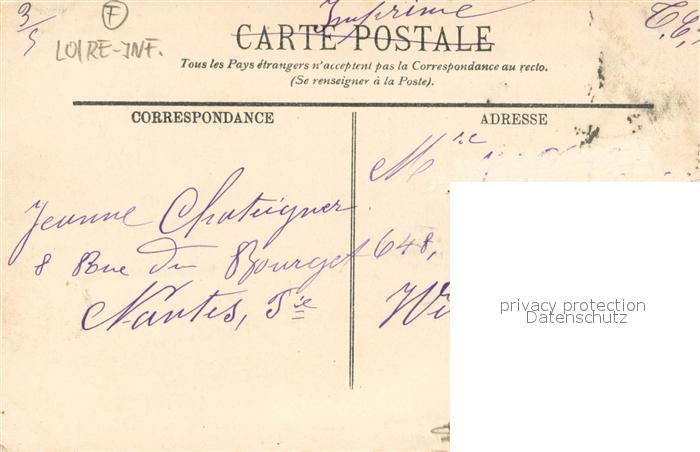 3/5
F
LOIRE-INF.
Imprimé
CARTE POSTALE
Tous les Pays étrangers n'acceptent pas la Correspondance au recto.
(Se renseigner à la Poste).
CORRESPONDANCE
ADRESSE
Jeanne Chateigner
8 Rue du Bourget
Nantes,
648,
privacy protection
Datenschutz